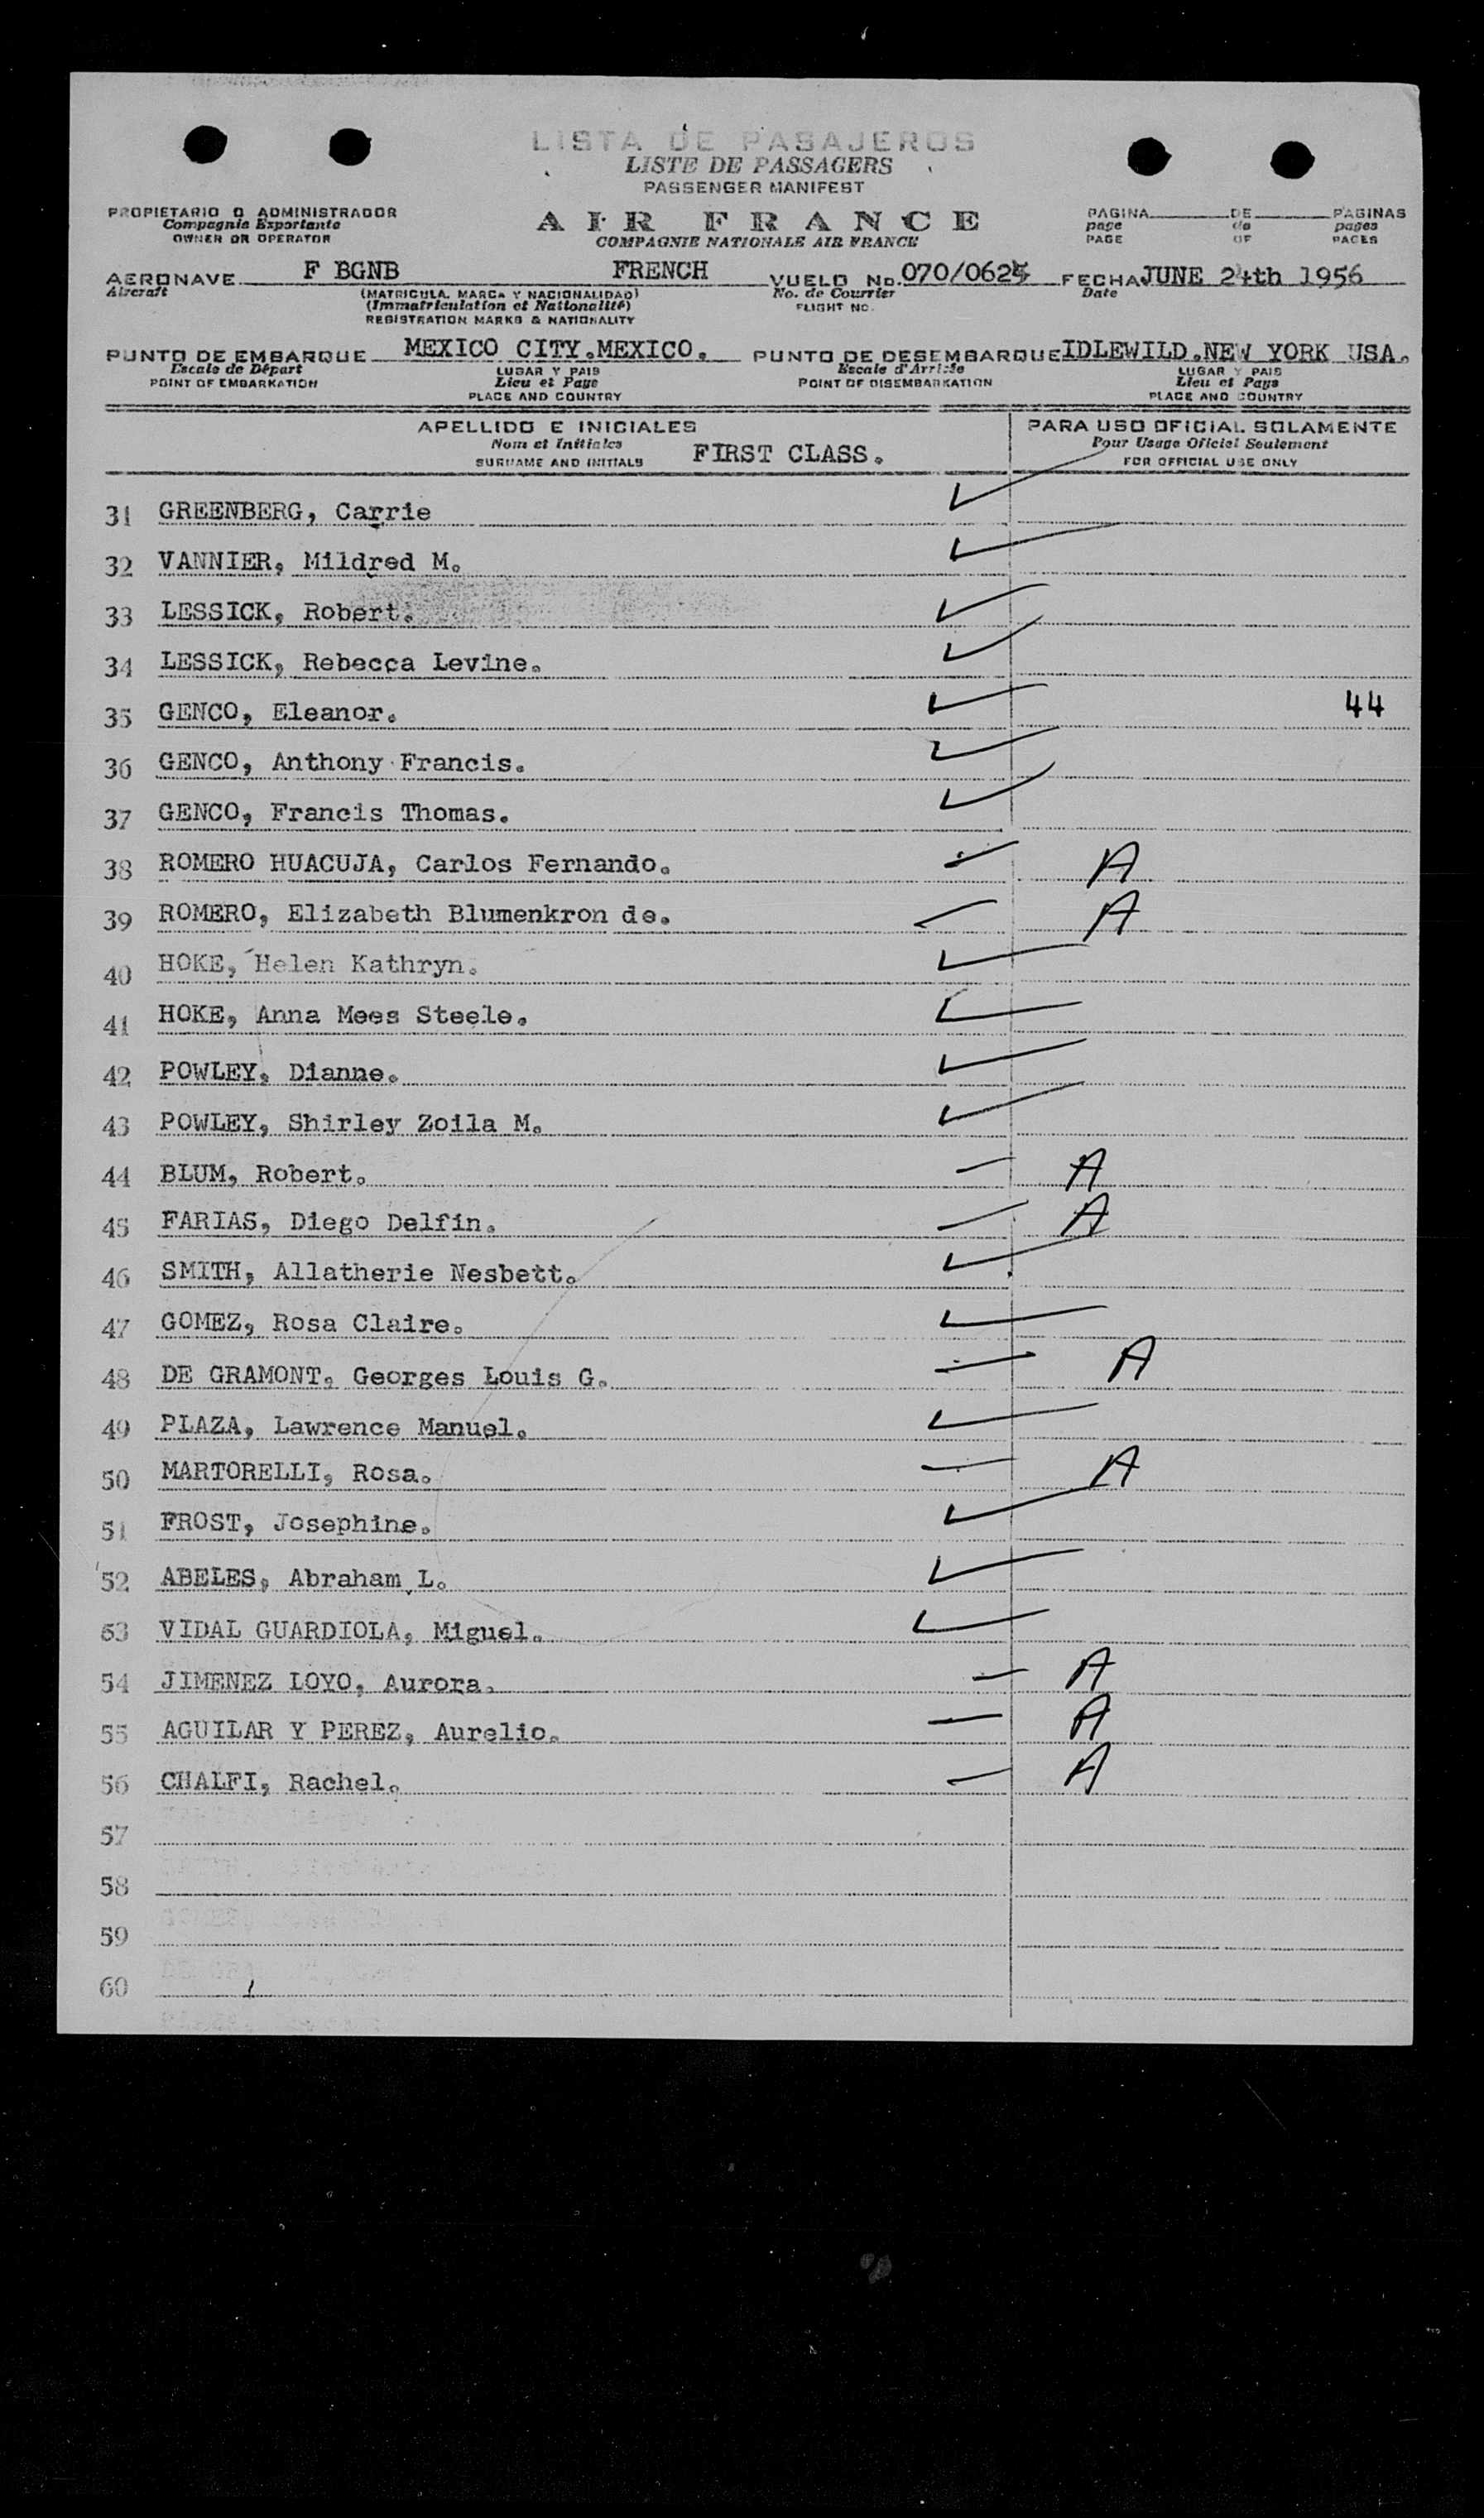 LISTA DE PASAJEROS
LISTE DE PASSAGERS
PASSENGER MANIFEST
PROPIETARIO O ADMINISTRADOR
Compagnie Exportante
OWNER OR OPERATOR
AIR FRANCE
COMPAGNIE NATIONALE AIR FRANCE
PAGINA DE PAGINAS
page de pages
PAGE OF PAGES
AERONAVE F BGNB FRENCH VUELO No. 070/062 FECHA JUNE 24th 1956
Aircraft (MATRICULA, MARCA Y NACIONALIDAD) No. de Courrier Date
(Immatriculation et Nationalité) FLIGHT NO.
REGISTRATION MARKS & NATIONALITY
PUNTO DE EMBARQUE MEXICO CITY.MEXICO. PUNTO DE DESEMBARQUE IDLEWILD.NEW YORK USA.
Escale de Départ LUGAR Y PAIS Escale d'Arrivée LUGAR Y PAIS
POINT OF EMBARKATION Lieu et Pays POINT OF DISEMBARKATION Lieu et Pays
PLACE AND COUNTRY PLACE AND COUNTRY
APELLIDO E INICIALES PARA USO OFICIAL SOLAMENTE
Nom et Initiales Pour Usage Oficiel Seulement
SURNAME AND INITIALS FIRST CLASS. FOR OFFICIAL USE ONLY
31 GREENBERG, Carrie
32 VANNIER, Mildred M.
33 LESSICK, Robert.
34 LESSICK, Rebecca Levine.
35 GENCO, Eleanor. 44
36 GENCO, Anthony Francis.
37 GENCO, Francis Thomas.
38 ROMERO HUACUJA, Carlos Fernando. A
39 ROMERO, Elizabeth Blumenkron de. A
40 HOKE, Helen Kathryn.
41 HOKE, Anna Mees Steele.
42 POWLEY, Dianne.
43 POWLEY, Shirley Zoila M.
44 BLUM, Robert. A
45 FARIAS, Diego Delfin. A
46 SMITH, Allatherie Nesbett.
47 GOMEZ, Rosa Claire.
48 DE GRAMONT, Georges Louis G. A
49 PLAZA, Lawrence Manuel.
50 MARTORELLI, Rosa. A
51 FROST, Josephine.
52 ABELES, Abraham L.
53 VIDAL GUARDIOLA, Miguel.
54 JIMENEZ LOYO, Aurora. A
55 AGUILAR Y PEREZ, Aurelio. A
56 CHALFI, Rachel. A
57
58
59
60